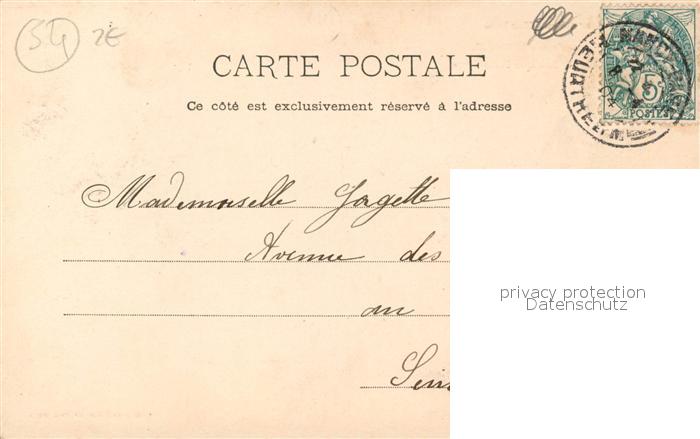 54 2€
CARTE POSTALE
Ce côté est exclusivement réservé à l'adresse
5c
POSTES
Mademoiselle Gorgette
Avenue des
au
privacy protection
Datenschutz